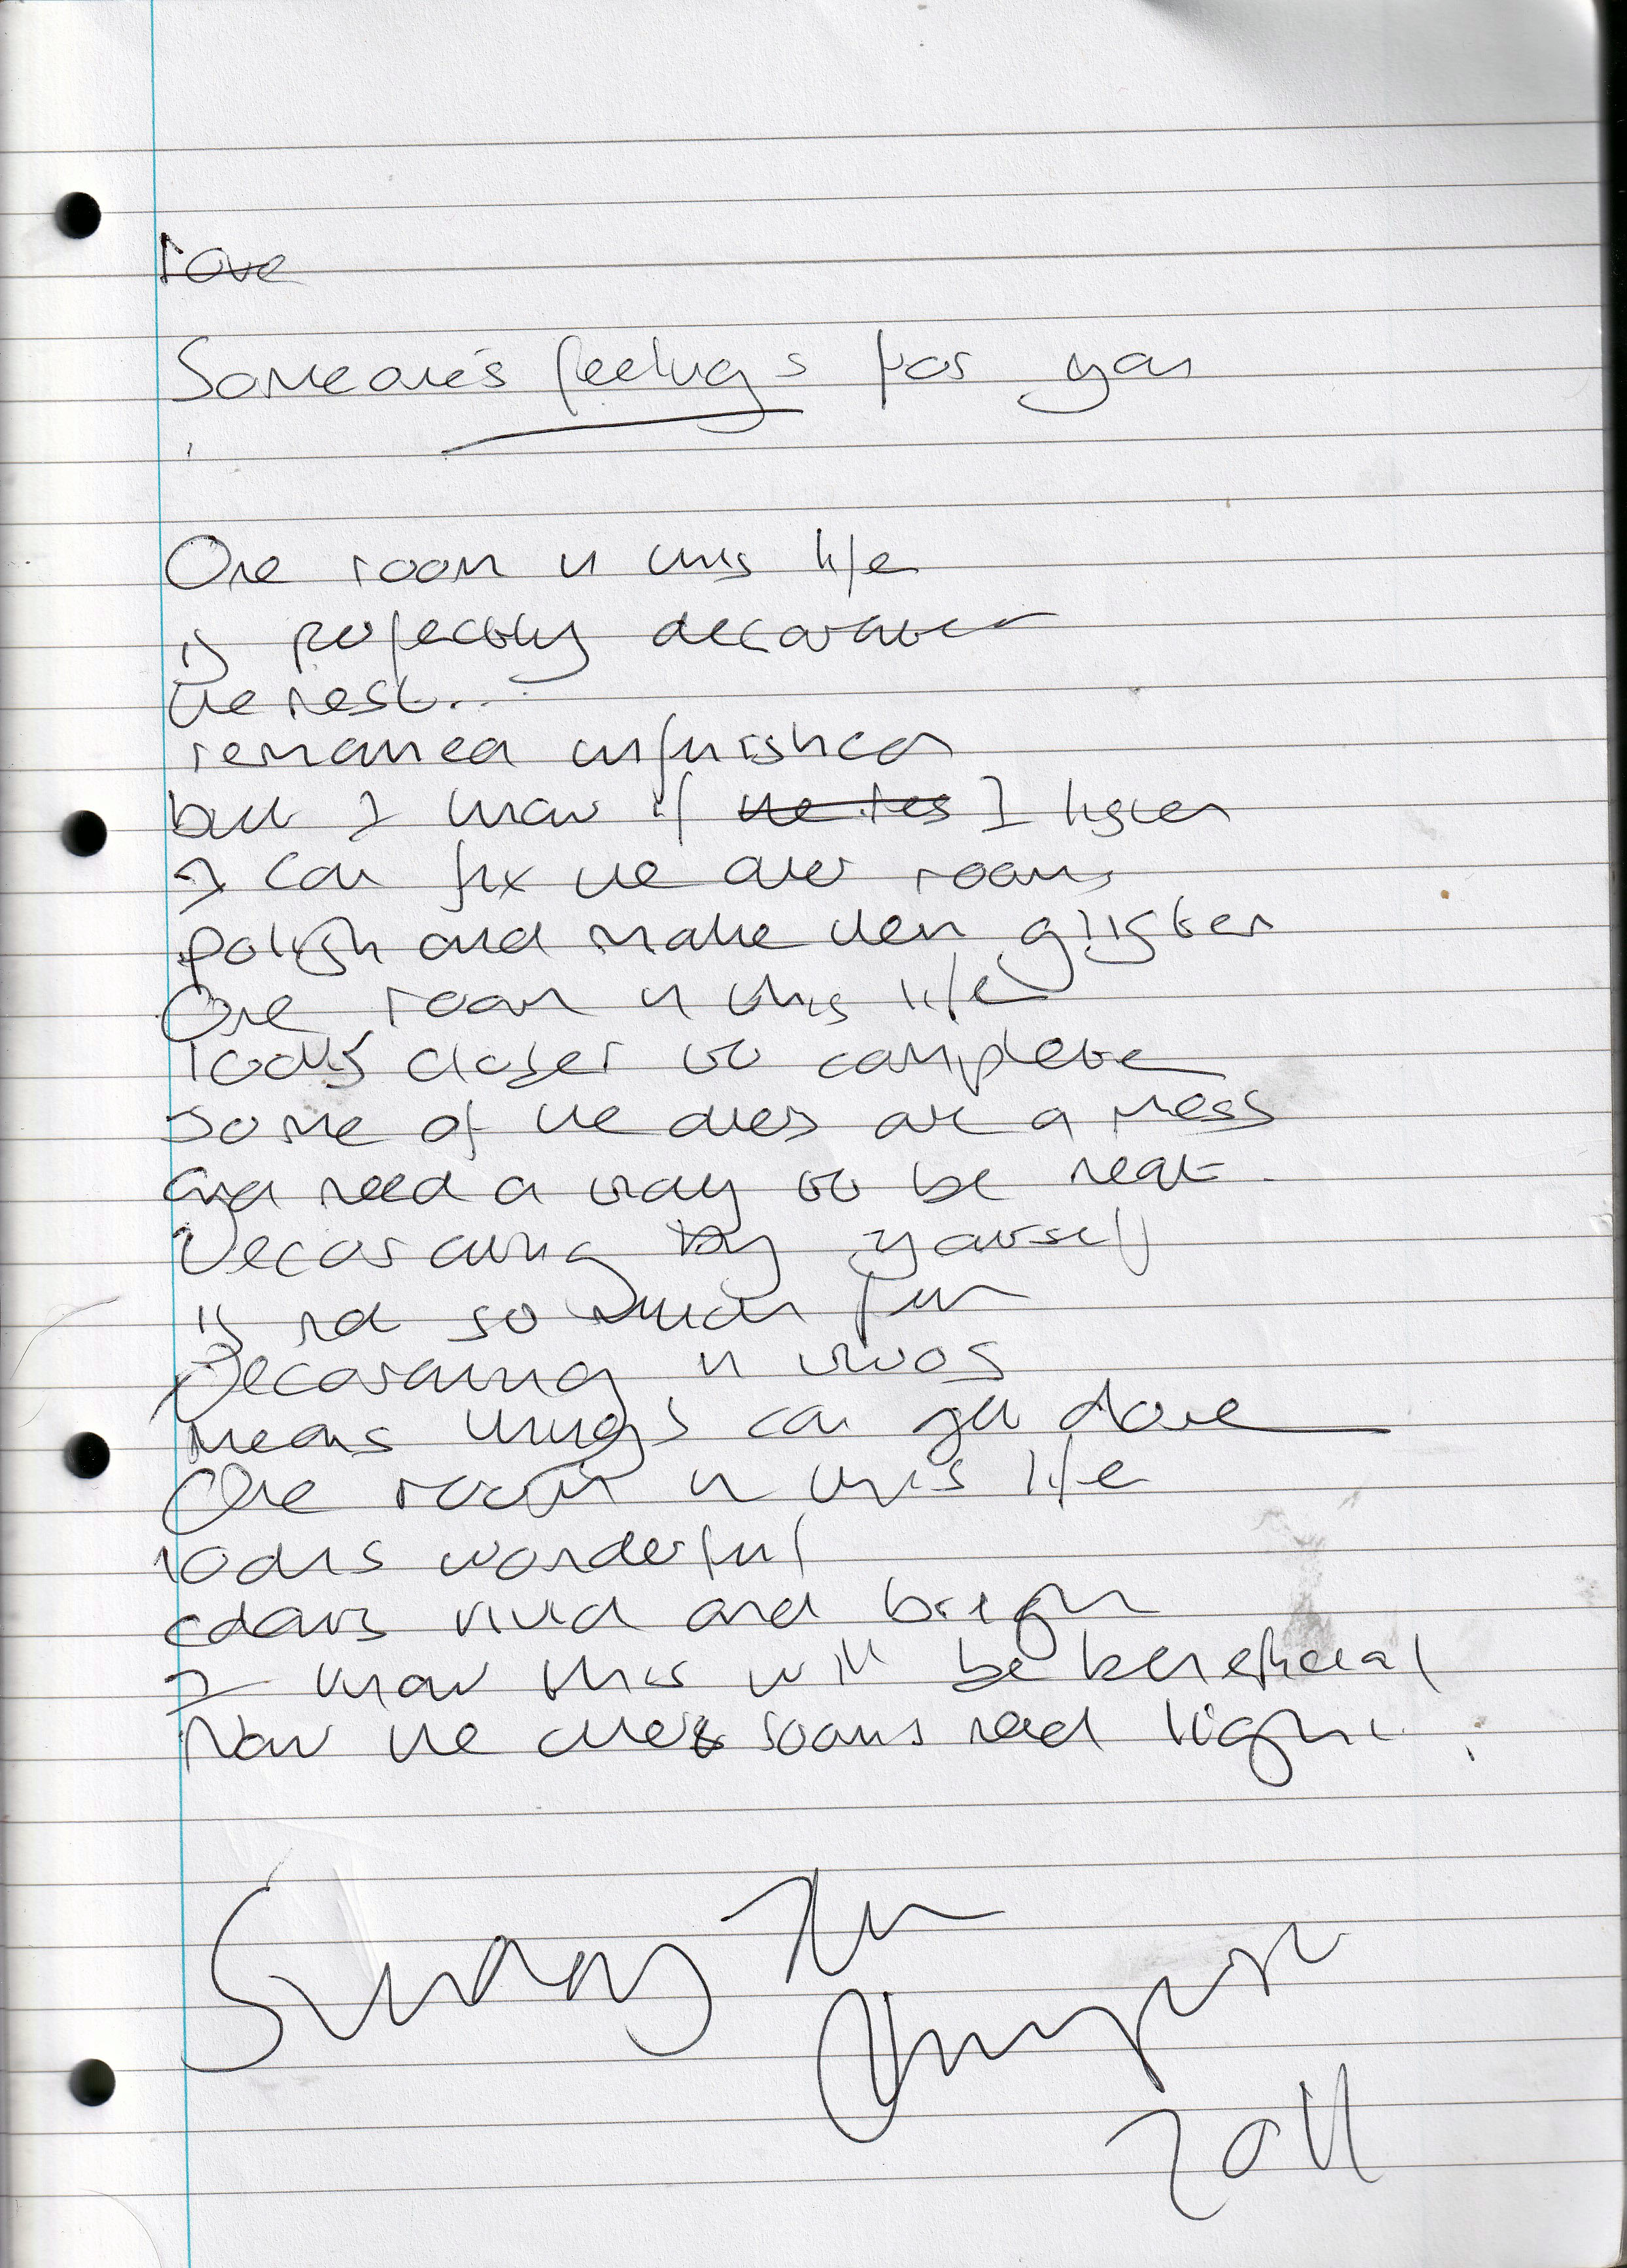 Love
Someone's feelings for you
One room in this life
is perfectly decorated
the rest...
remained unfinished
but I know if the res I listen
I can fix the other rooms
polish and make them glisten
One room in this life
looks closer to complete
some of the others are a mess
and need a way to be neat.
Decorating by yourself
is not so much fun
Decorating in twos
means things can get done
One room in this life
looks wonderful
colours vivid and bright
I know this will be beneficial
Now the other rooms need light.
2011